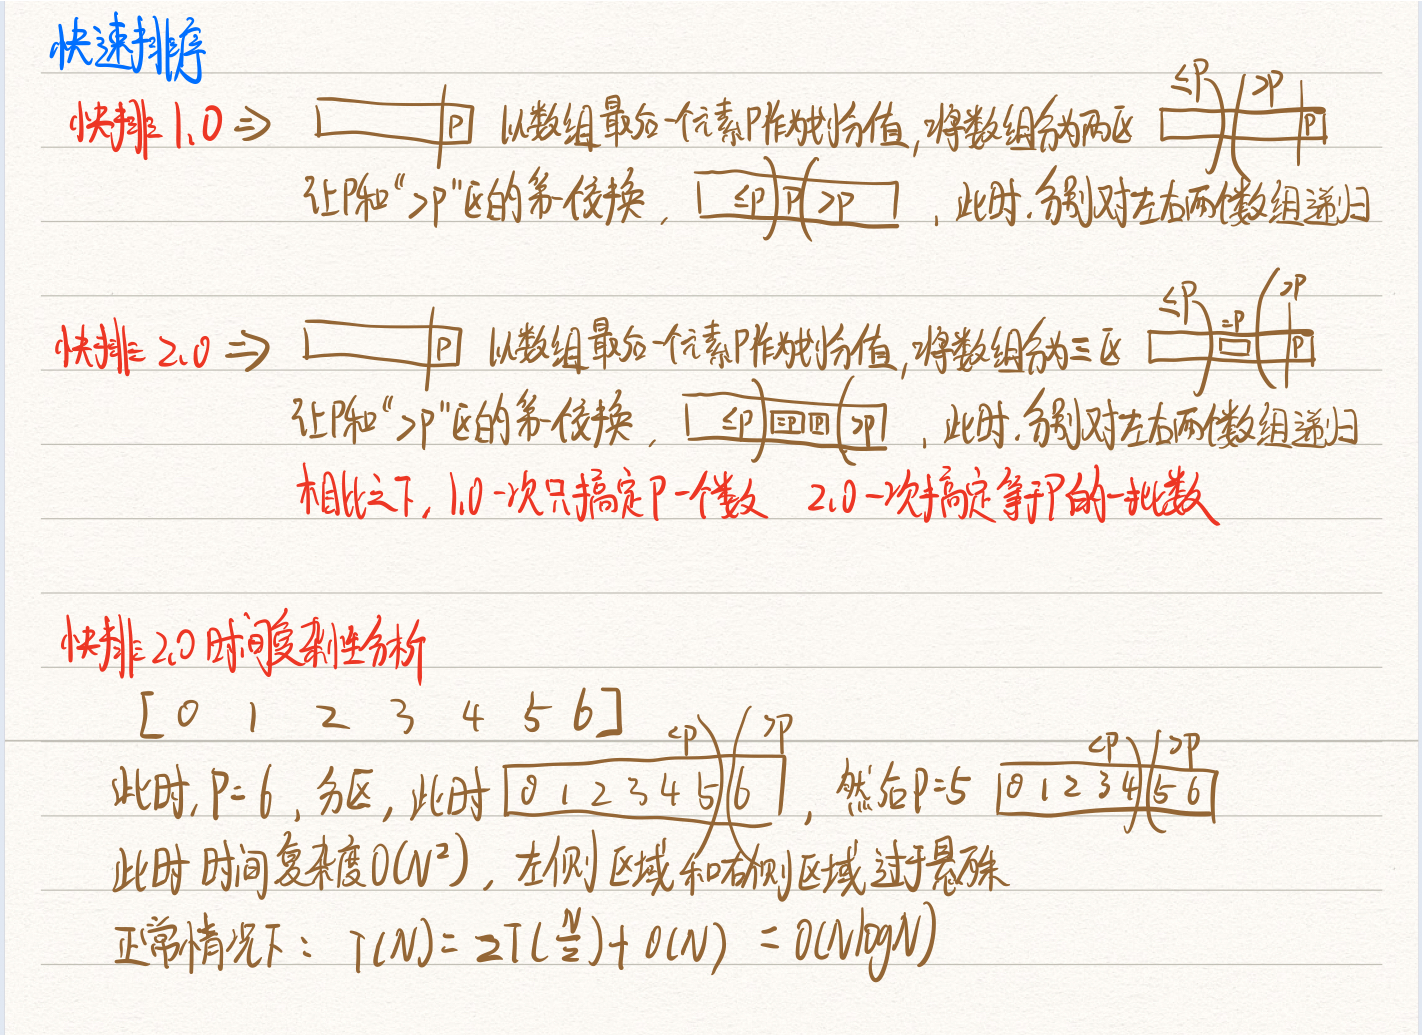 快速排序
≤P >P
快排1.0 ⇒ P 以数组最后一个元素P作为划分值,将数组分为两区 P
让P和“>P”区的第一位交换, ≤P P >P ,此时.分别对左右两个数组递归
≤P =P >P
快排2.0 ⇒ P 以数组最后一个元素P作为划分值,将数组分为三区 P
让P和“>P”区的第一位交换, ≤P =P P >P ,此时.分别对左右两个数组递归
相比之下,1.0一次只搞定P一个数 2.0一次搞定等于P的一批数
快排2.0时间复杂性分析
[0 1 2 3 4 5 6]
<P >P <P >P
此时,P=6,分区,此时 0 1 2 3 4 5 6 ,然后P=5 0 1 2 3 4 5 6
此时时间复杂度O(N²),左侧区域和右侧区域过于悬殊
正常情况下:T(N)=2T(N/2)+O(N) =O(NlogN)